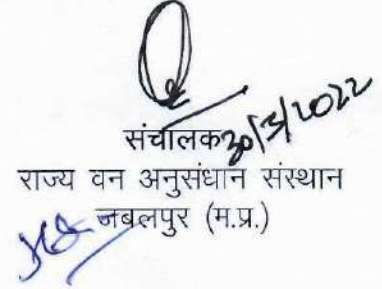 संचालक 30/3/2022
राज्य वन अनुसंधान संस्थान
जबलपुर (म.प्र.)